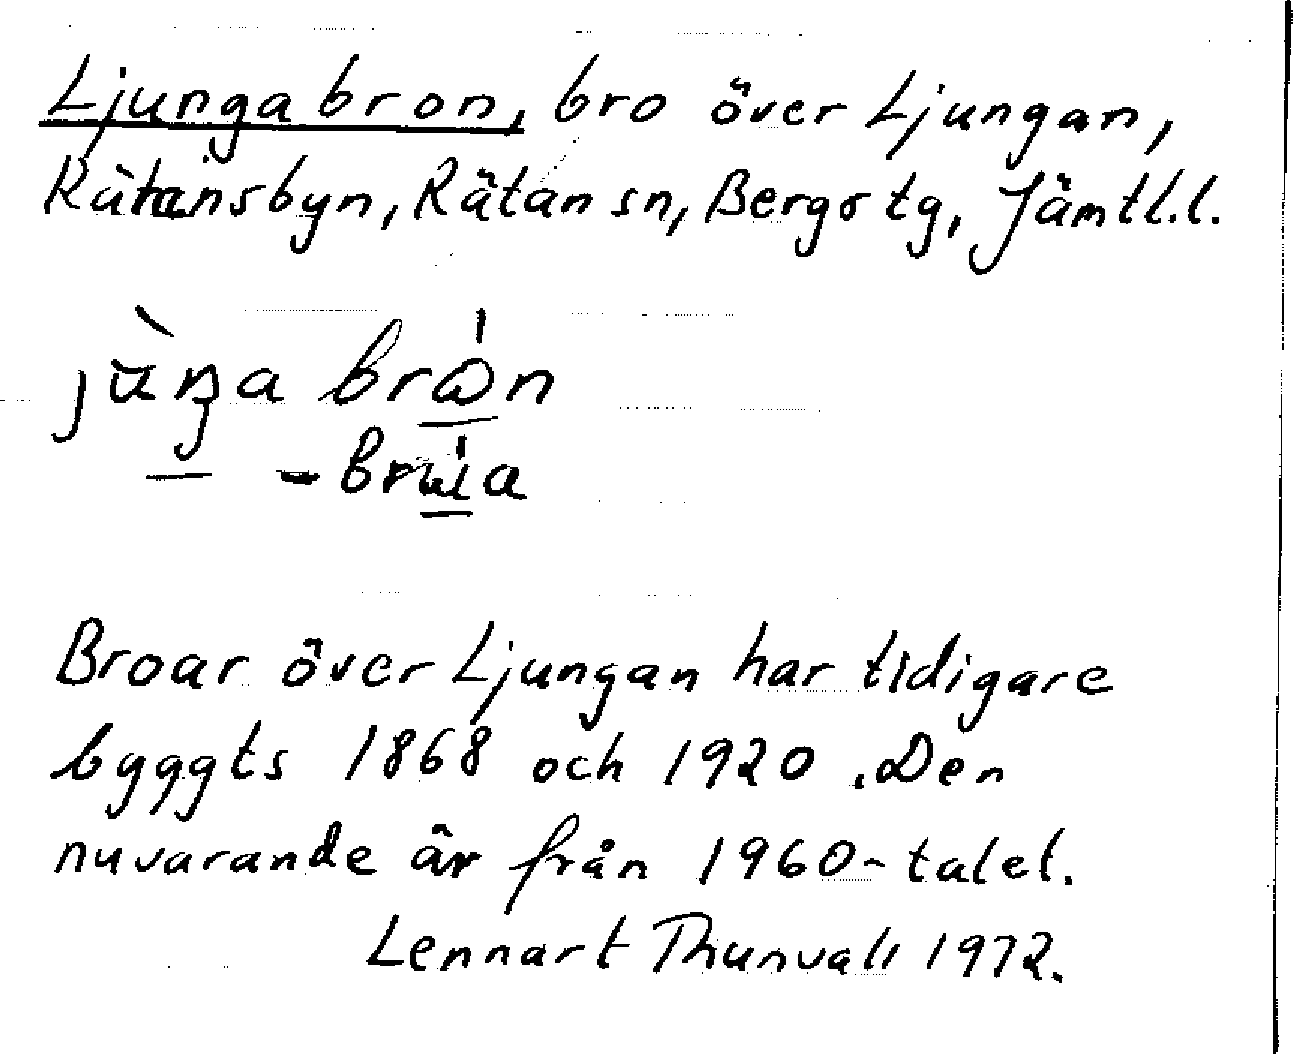 Ljungabron, bro över Ljungan,
Rätansbyn, Rätan sn, Bergs tg, Jämtl.l.
Broar över Ljungan har tidigare
byggts 1868 och 1920. Den
nuvarande är från 1960-talet.
Lennart Thunvall 1972.